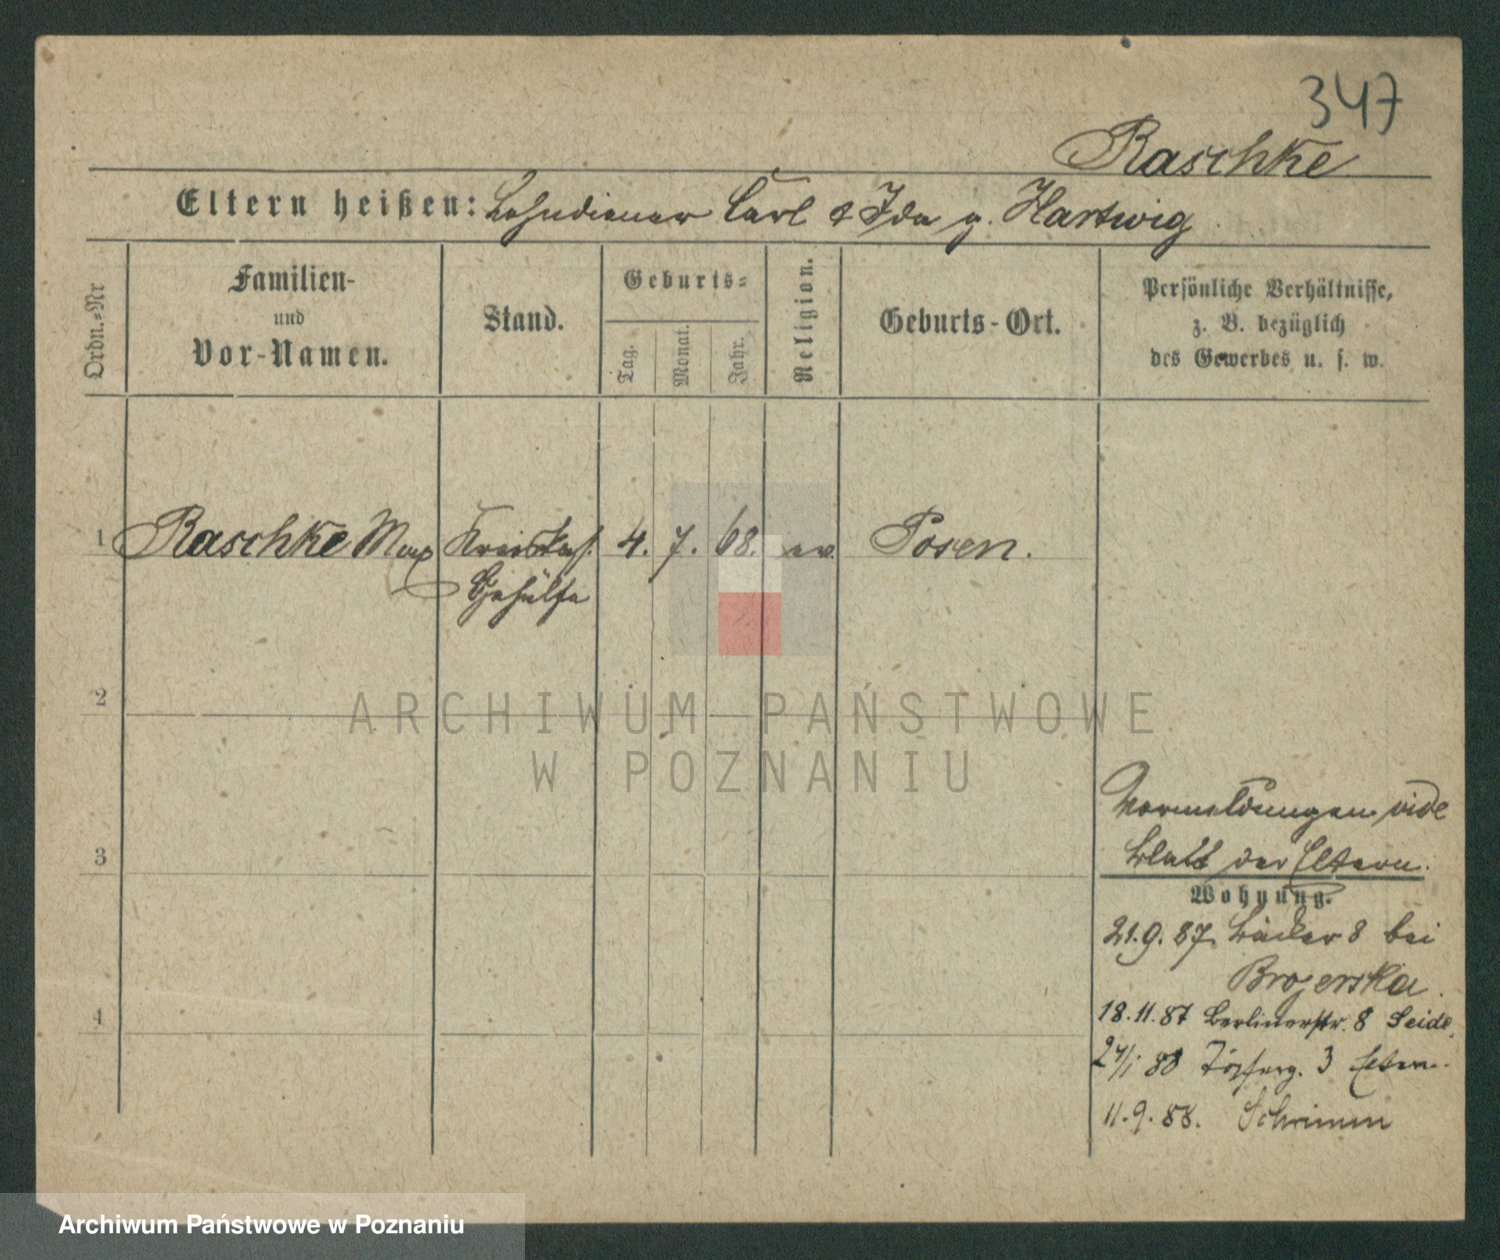 347
Raschke
Eltern heißen: Lohndiener Carl & Ida g. Hartwig
Ordn.=Nr
Familien-
und
Vor-Namen.
Stand.
Geburts=
Tag.
Monat.
Jahr.
Religion.
Geburts-Ort.
Persönliche Verhältnisse,
z. B. bezüglich
des Gewerbes u. s. w.
1 Raschke Max Kreiskass. 4. 7. 68. ev. Posen.
Gehülfe
2
ARCHIWUM PAŃSTWOWE
W POZNANIU
3
Vormeldungen vide
Blatt der Eltern.
Wohnung.
21.9.87 Bäcker 8 bei
Brojerska.
4
18.11.87 Berlinerstr. 8 Seide
24/1 88 Töpferg. 3 Eltern.
11.9.88. Schrimm
Archiwum Państwowe w Poznaniu